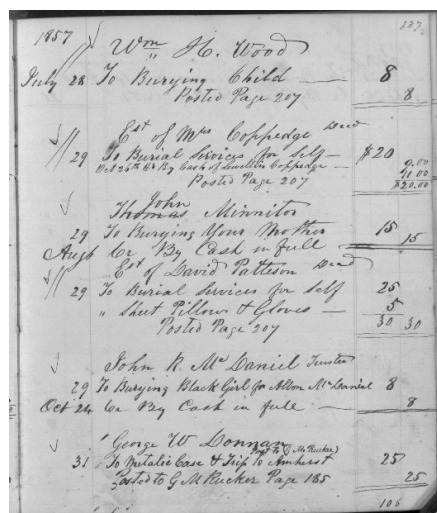 127
1857
Wm H. Wood
July 28 To Burying Child — 8
Posted Page 207 8
Est of Mrs Coppedge Decd
29 To Burial Services for Self — $20
Oct 26th Cr By Cash of Coppedge — 9.00
11 00
Posted Page 207 $20.00
John
Thomas Minnitor
29 To Burying Your Mother 15
Aug 6 Cr By Cash in full — 15
Est of David Patteson Decd
29 To Burial Services for Self 25
" Sheet Pillows & Gloves — 5
Posted Page 207 30 30
John R. McDaniel Trustee
29 To Burying Black Girl for Albon McDaniel 8
Oct 24 Cr By Cash in full — 8
George W Donnan
Post to G M Rucker)
31 To Metalic Case & Trip to Amherst 25
Posted to G M Rucker Page 185 25
106